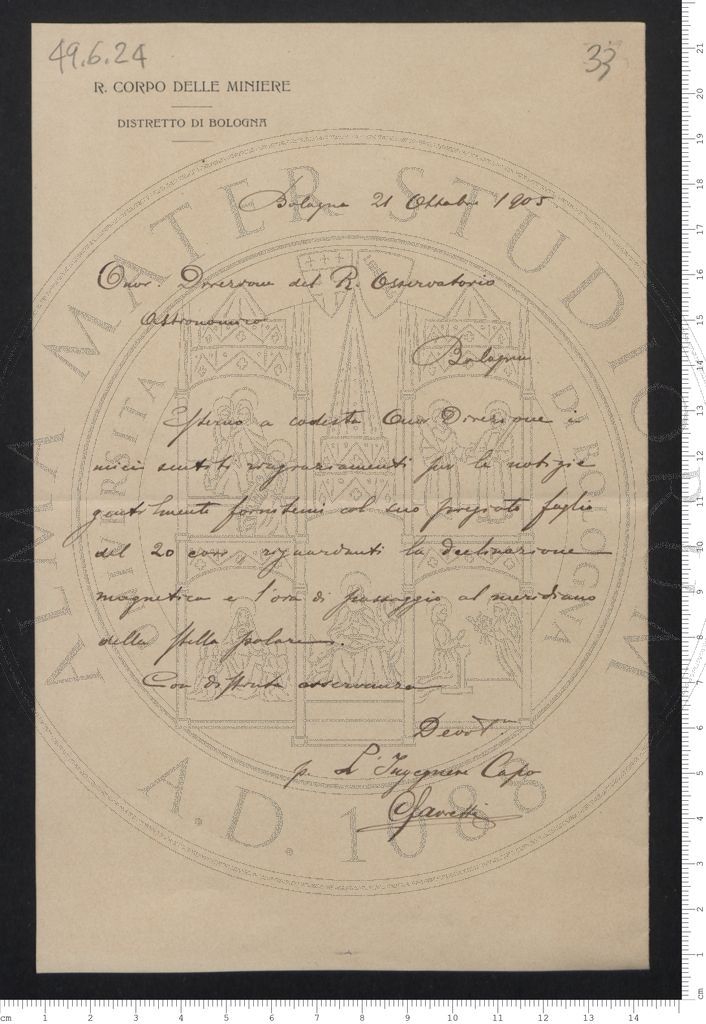 49.6.24
33
R. CORPO DELLE MINIERE
DISTRETTO DI BOLOGNA
Bologna 21 Ottobre 1905
Onor. Direzione del R. Osservatorio
Astronomico
Bologna
Esterno a codesta Onor Direzione i
miei sentiti ringraziamenti per le notizie
gentilmente fornitemi col suo pregiato foglio
del 20 corr. riguardanti la declinazione
magnetica e l'ora di passaggio al meridiano
della stella polare.
Con distinta osservanza
Devot.mo
p. L'Ingegnere Capo
ALMA MATER STUDIORUM
UNIVERSITA DI BOLOGNA
A.D. 1088